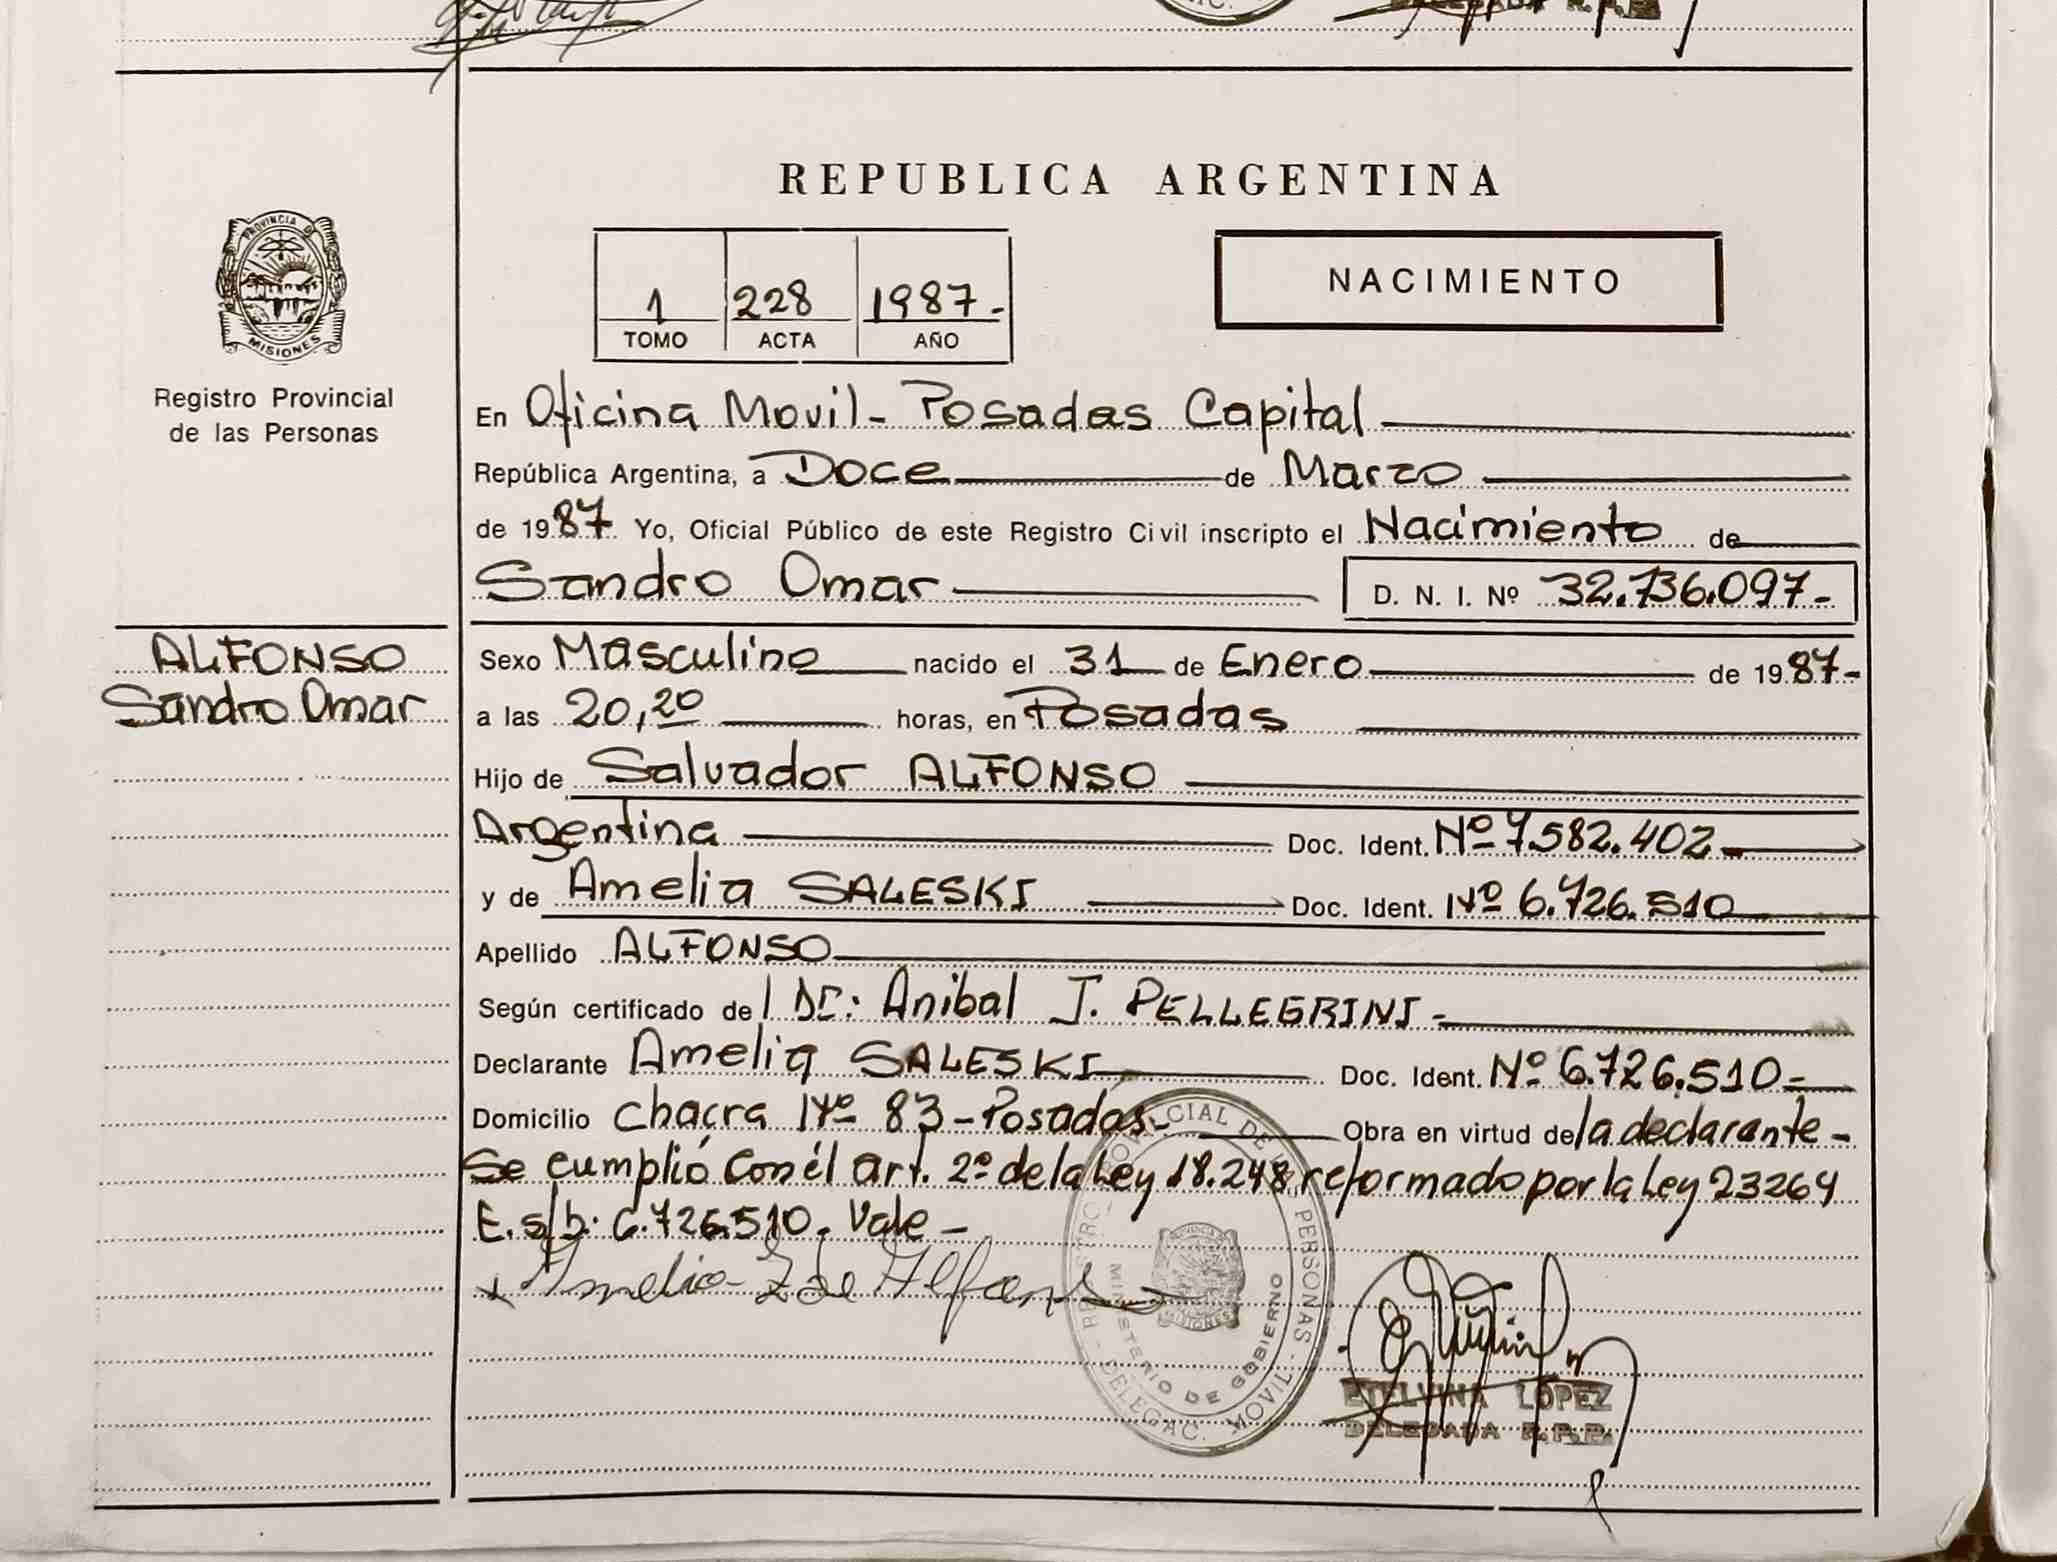 REPUBLICA ARGENTINA
PROVINCIA D
MISIONES
Registro Provincial
de las Personas
1 228 1987-
TOMO ACTA AÑO
NACIMIENTO
En Oficina Movil- Posadas Capital
República Argentina, a Doce de Marzo
de 1987 Yo, Oficial Público de este Registro Civil inscripto el Nacimiento de
Sandro Omar D. N. I. Nº 32.736.097-
ALFONSO
Sandro Omar
Sexo Masculino nacido el 31 de Enero de 1987-
a las 20,20 horas, en Posadas
Hijo de Salvador ALFONSO
Argentina Doc. Ident. Nº 7.582.402
y de Amelia SALESKI Doc. Ident. Nº 6.726.510
Apellido ALFONSO
Según certificado de l Dr: Anibal J. PELLEGRINI-
Declarante Amelia SALESKI Doc. Ident. Nº 6.726.510-
Domicilio chacra Nº 83-Posadas- Obra en virtud de la declarante-
Se cumplió con él art. 2º de la Ley 18.248 reformado por la Ley 23264
E. s/b: 6.726.510. Vale-
x Amelia S de Alfonso
MINISTERIO DE GOBIERNO
DELEGAC. MOVIL
PERSONAS
MISIONES
ETELVINA LOPEZ
DELEGADA R.P.P.